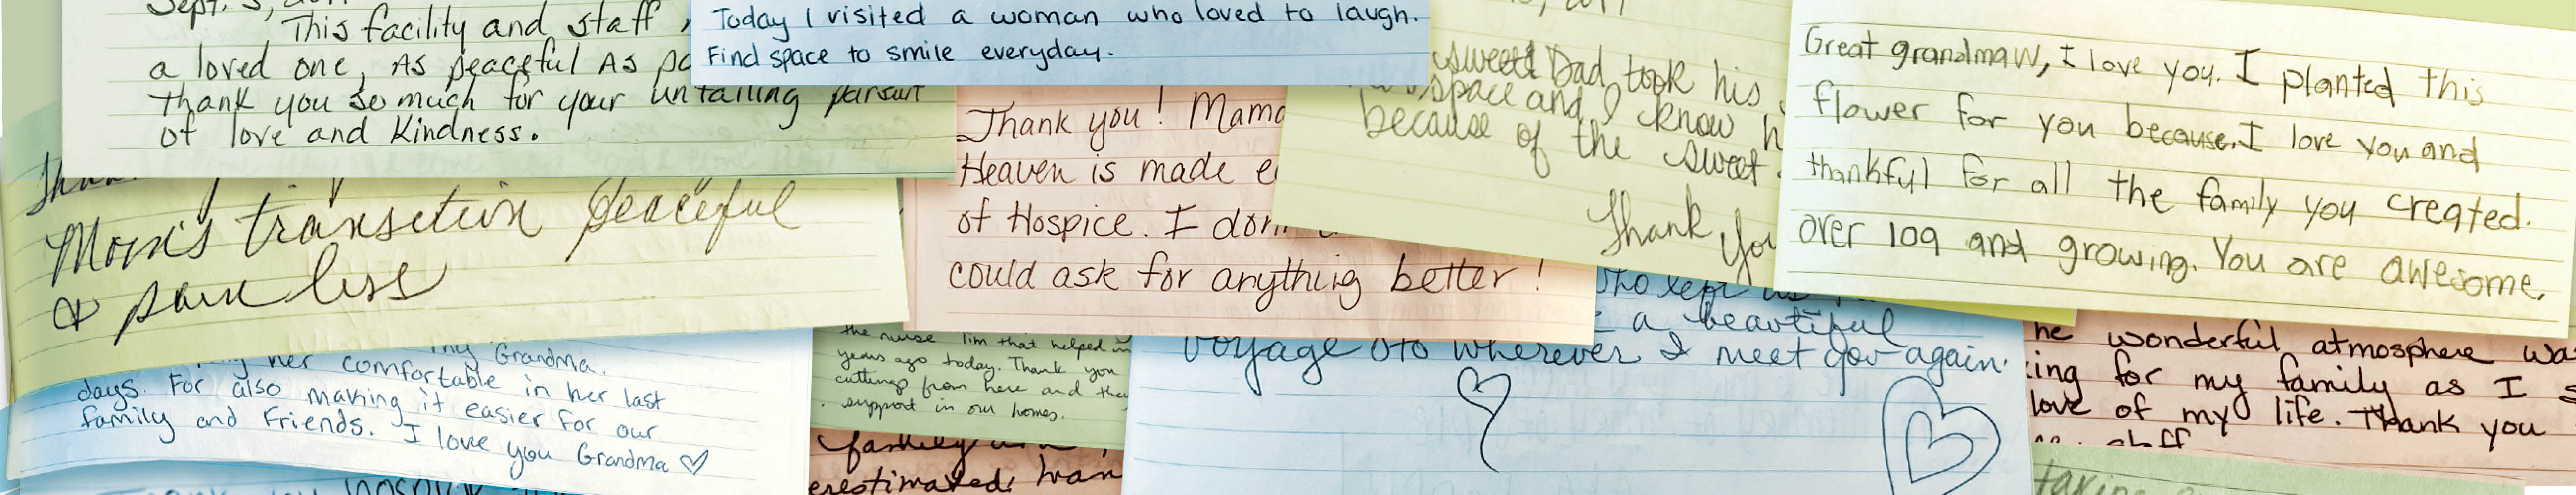 Sept. 5,
This facility and staff
a loved one, As peaceful As
Thank you so much for your unfailing pursuit
of love and Kindness.
Today I visited a woman who loved to laugh.
Find space to smile everyday.
sweet Dad took his
space and I know
because of the sweet
Thank you
Great grandmaw, I love you. I planted this
flower for you because I love you and
thankful for all the family you created.
over 109 and growing. You are awesome.
Mom's transetion peaceful
& pain less
Thank you! Mama
Heaven is made
of Hospice. I don't
could ask for anything better!
my Grandma.
her comfortable in her last
days. For also making it easier for our
family and Friends. I love you Grandma ♡
the nurse Tim that helped
years ago today. Thank you
cuttings from here and
support in our homes.
family
erestimated.
who left us
a beautiful
voyage to wherever I meet you again.
he wonderful atmosphere was
ing for my family as I
love of my life. Thank you
staff
taking